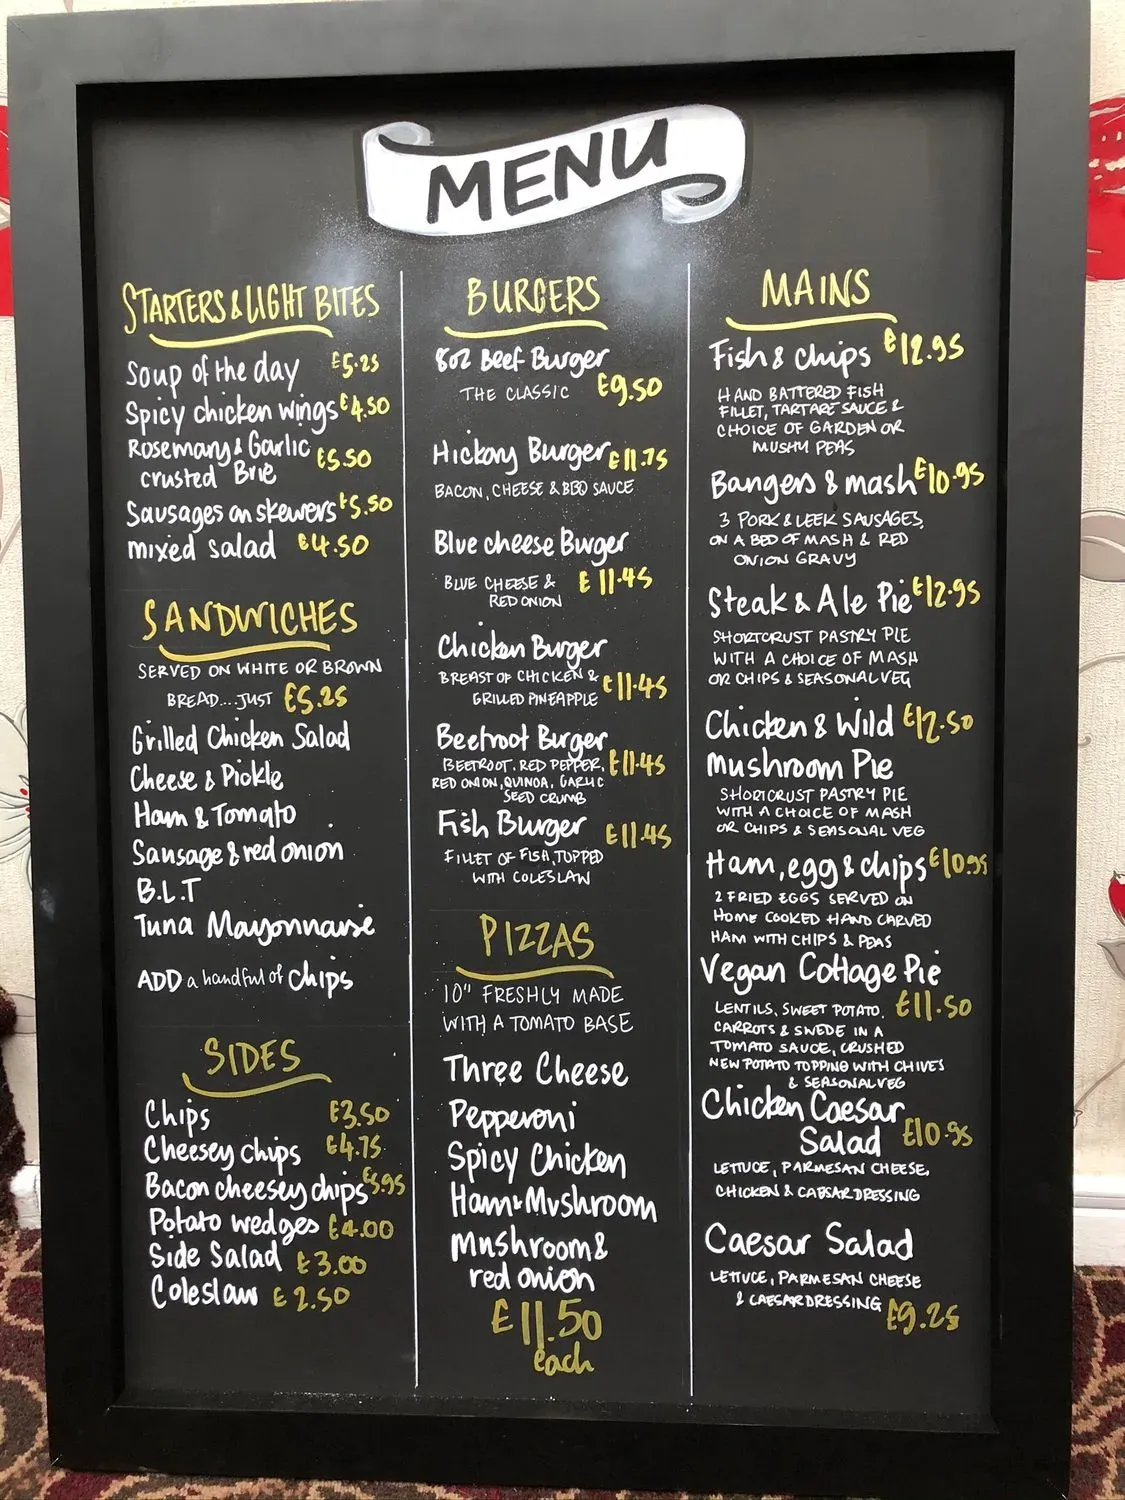 MENU
STARTERS & LIGHT BITES
Soup of the day £5.25
Spicy chicken wings £4.50
Rosemary & Garlic
crusted Brie £5.50
Sausages on skewers £5.50
mixed salad £4.50
SANDWICHES
SERVED ON WHITE OR BROWN
BREAD....JUST £5.25
Grilled Chicken Salad
Cheese & Pickle
Ham & Tomato
Sausage & red onion
B.L.T
Tuna Mayonnaise
ADD a handful of chips
SIDES
Chips £3.50
Cheesey chips £4.75
Bacon cheesey chips £5.95
Potato wedges £4.00
Side Salad £3.00
Coleslaw £2.50
BURGERS
8oz Beef Burger
THE CLASSIC £9.50
Hickory Burger £11.75
BACON, CHEESE & BBQ SAUCE
Blue cheese Burger
BLUE CHEESE & £11.45
RED ONION
Chicken Burger
BREAST OF CHICKEN & £11.45
GRILLED PINEAPPLE
Beetroot Burger
BEETROOT, RED PEPPER, £11.45
RED ONION, QUINOA, GARLIC
SEED CRUMB
Fish Burger £11.45
FILLET OF FISH, TOPPED
WITH COLESLAW
PIZZAS
10" FRESHLY MADE
WITH A TOMATO BASE
Three Cheese
Pepperoni
Spicy Chicken
Ham & Mushroom
Mushroom &
red onion
£11.50
each
MAINS
Fish & chips £12.95
HAND BATTERED FISH
FILLET, TARTARE SAUCE &
CHOICE OF GARDEN OR
MUSHY PEAS
Bangers & mash £10.95
3 PORK & LEEK SAUSAGES,
ON A BED OF MASH & RED
ONION GRAVY
Steak & Ale Pie £12.95
SHORTCRUST PASTRY PIE
WITH A CHOICE OF MASH
OR CHIPS & SEASONAL VEG
Chicken & Wild £12.50
Mushroom Pie
SHORTCRUST PASTRY PIE
WITH A CHOICE OF MASH
OR CHIPS & SEASONAL VEG
Ham, egg & chips £10.95
2 FRIED EGGS SERVED ON
HOME COOKED HAND CARVED
HAM WITH CHIPS & PEAS
Vegan Cottage Pie
LENTILS, SWEET POTATO, £11.50
CARROTS & SWEDE IN A
TOMATO SAUCE, CRUSHED
NEW POTATO TOPPING WITH CHIVES
& SEASONAL VEG
Chicken Caesar
Salad £10.95
LETTUCE, PARMESAN CHEESE,
CHICKEN & CAESAR DRESSING
Caesar Salad
LETTUCE, PARMESAN CHEESE
& CAESAR DRESSING £9.25